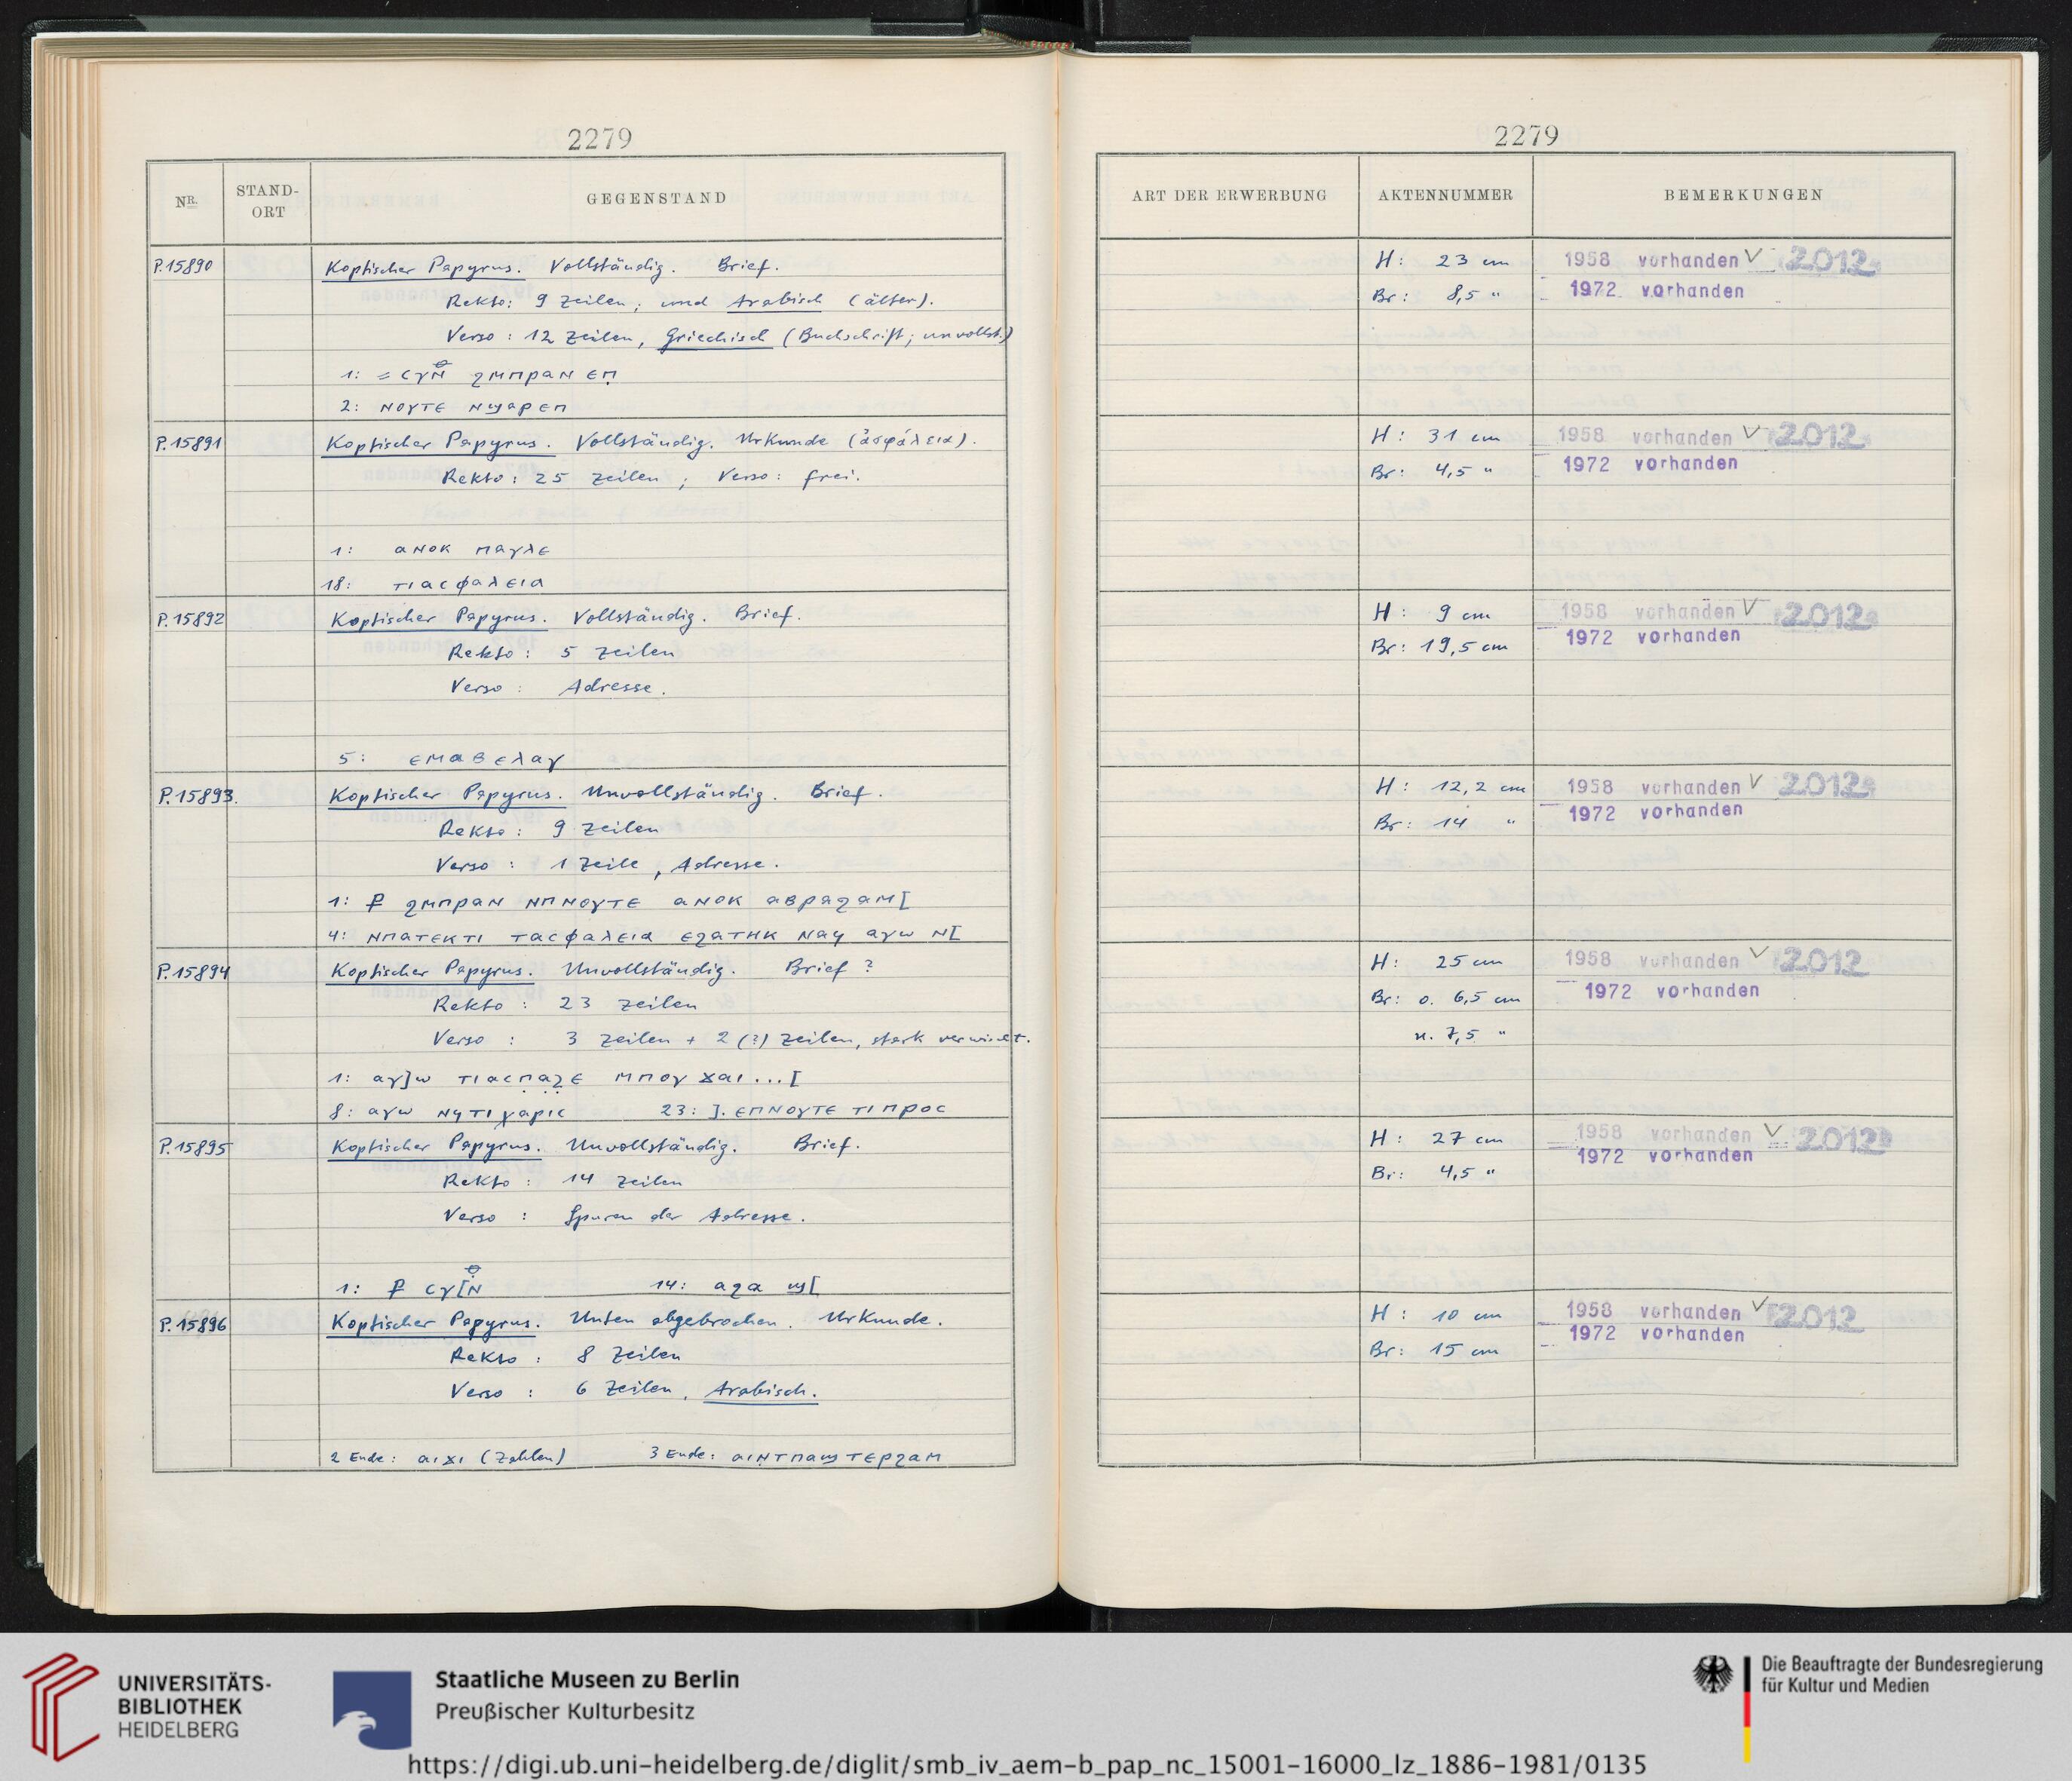 2279
NR. STAND-ORT GEGENSTAND
P.15890 Koptischer Papyrus. Vollständig. Brief.
Rekto: 9 Zeilen; und Arabisch (älter).
Verso: 12 Zeilen, Griechisch (Buchschrift; unvollst.)
1: ⲥⲩⲛ ϩⲙⲡⲣⲁⲛ ⲉⲡ̣
2: ⲛⲟⲩⲧⲉ ⲛϣⲁⲣⲉⲡ
P.15891 Koptischer Papyrus. Vollständig. Urkunde (ἀσφάλεια).
Rekto: 25 Zeilen; Verso: frei.
1: ⲁⲛⲟⲕ ⲡⲁⲩⲗⲉ
18: ⲧⲓⲁⲥⲫⲁⲗⲉⲓⲁ
P.15892 Koptischer Papyrus. Vollständig. Brief.
Rekto: 5 Zeilen
Verso: Adresse.
5: ⲉⲙⲁⲃⲉⲗⲁⲩ
P.15893. Koptischer Papyrus. Unvollständig. Brief.
Rekto: 9 Zeilen
Verso: 1 Zeile, Adresse.
1: ⳨ ϩⲙⲡⲣⲁⲛ ⲛⲡⲛⲟⲩⲧⲉ ⲁⲛⲟⲕ ⲁⲃⲣⲁϩⲁⲙ[
4: ⲛⲡⲁⲧⲉⲕⲧⲓ ⲧⲁⲥⲫⲁⲗⲉⲓⲁ ⲉϩⲁⲧⲏⲕ ⲛⲁϥ ⲁⲩⲱ ⲛ[
P.15894 Koptischer Papyrus. Unvollständig. Brief ?
Rekto: 23 Zeilen
Verso: 3 Zeilen + 2 (?) Zeilen, stark verwischt.
1: ⲁⲩ]ⲱ ⲧⲓⲁⲥⲡⲁⲍⲉ ⲙⲡⲟⲩϫⲁⲓ...[
8: ⲁⲩⲱ ⲛϥⲧⲓ ⲭⲁⲣⲓⲥ 23: ]. ⲉⲡⲛⲟⲩⲧⲉ ⲧⲓⲡⲣⲟⲥ
P.15895 Koptischer Papyrus. Unvollständig. Brief.
Rekto: 14 Zeilen
Verso: Spuren der Adresse.
1: ⳨ ⲥⲩ[ⲛ 14: ⲁϩⲁ ϣ[
P.15896 Koptischer Papyrus. Unten abgebrochen. Urkunde.
Rekto: 8 Zeilen
Verso: 6 Zeilen, Arabisch.
2 Ende: ⲁⲓϫⲓ (Zahlen) 3 Ende: ⲁⲓⲛⲧⲡⲁϣⲧⲉⲣϩⲁⲙ
2279
ART DER ERWERBUNG AKTENNUMMER BEMERKUNGEN
H: 23 cm 1958 vorhanden V 2012
Br: 8,5 " 1972 vorhanden
H: 31 cm 1958 vorhanden V 2012
Br: 4,5 " 1972 vorhanden
H: 9 cm 1958 vorhanden V 2012
Br: 19,5 cm 1972 vorhanden
H: 12,2 cm 1958 vorhanden V 2012
Br: 14 " 1972 vorhanden
H: 25 cm 1958 vorhanden V 2012
Br: o. 6,5 cm 1972 vorhanden
u. 7,5 "
H: 27 cm 1958 vorhanden V 2012
Br: 4,5 " 1972 vorhanden
H: 10 cm 1958 vorhanden V 2012
Br: 15 cm 1972 vorhanden
UNIVERSITÄTS-
BIBLIOTHEK
HEIDELBERG
Staatliche Museen zu Berlin
Preußischer Kulturbesitz
Die Beauftragte der Bundesregierung
für Kultur und Medien
https://digi.ub.uni-heidelberg.de/diglit/smb_iv_aem-b_pap_nc_15001-16000_lz_1886-1981/0135